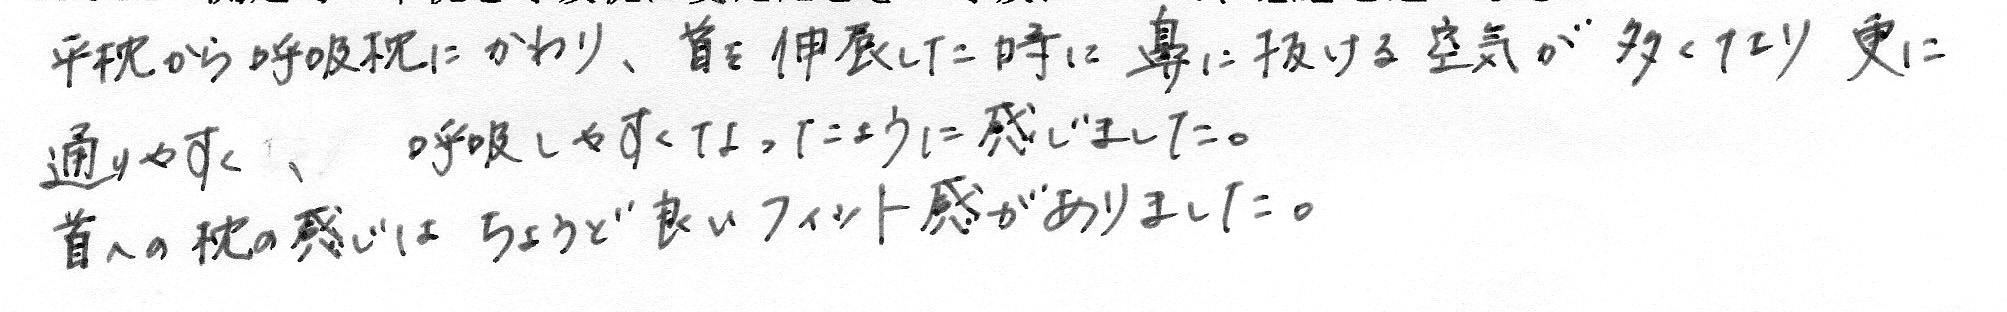 平枕から呼吸枕にかわり、首を伸展した時に鼻に抜ける空気が多くなり更に
通りやすく、呼吸しやすくなったように感じました。
首への枕の感じはちょうど良いフィット感がありました。